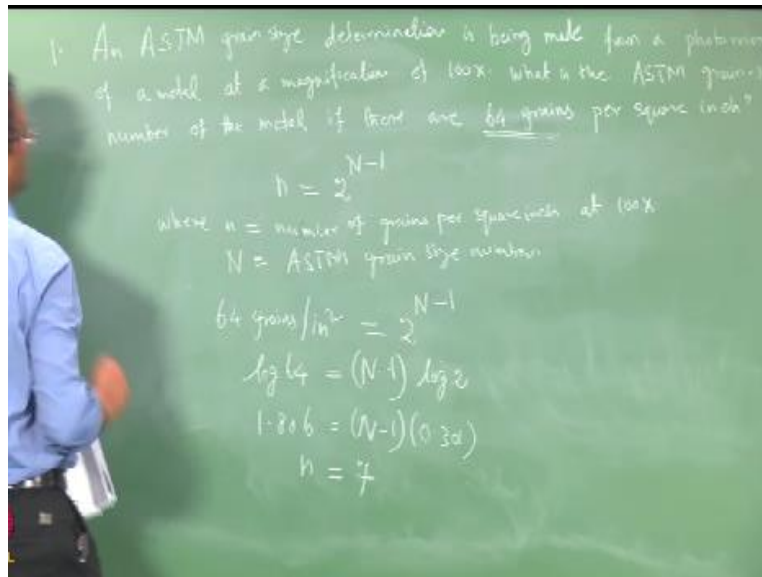 1. An ASTM grain size determination is being made from a photomic
of a metal at a magnification of 100x. What is the ASTM grain-s
number of the metal if there are 64 grains per square inch?
n = 2^N-1
where n = number of grains per square inch at 100x
N = ASTM grain size number.
64 grains/in² = 2^N-1
log 64 = (N-1) log 2
1.806 = (N-1)(0.301)
n = 7